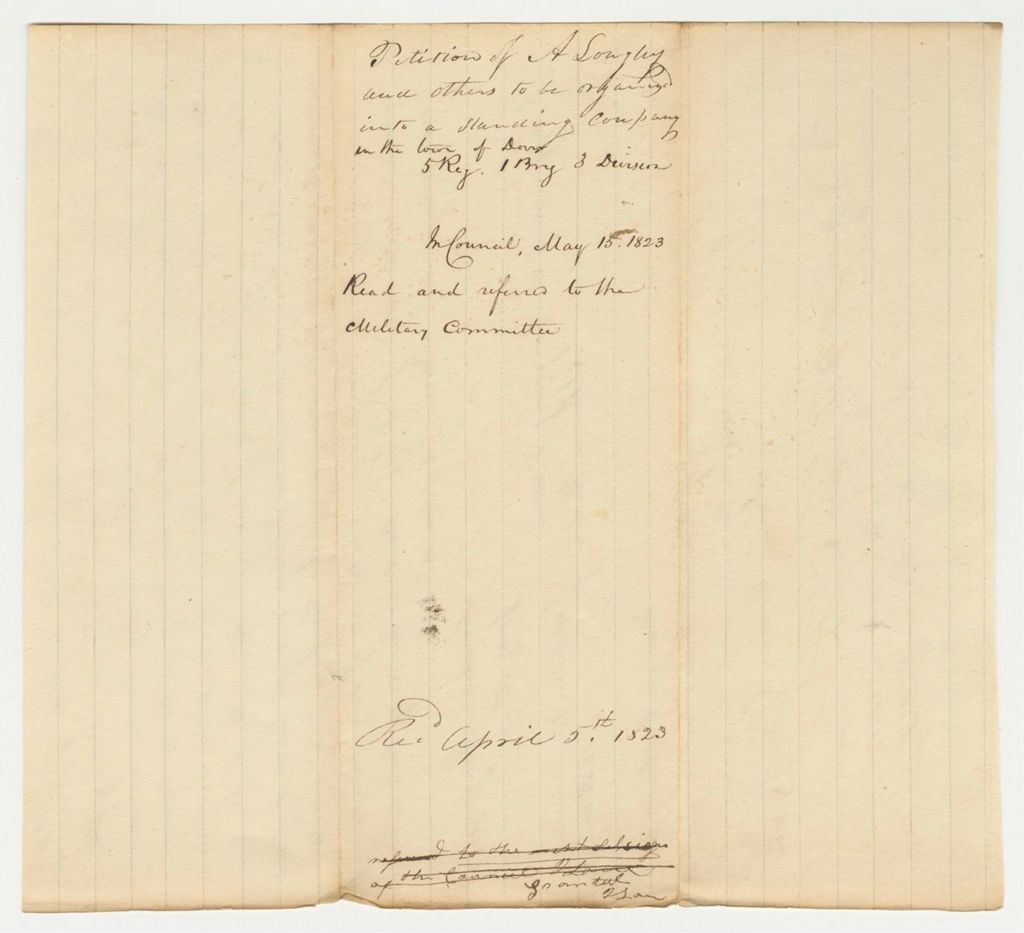 Petition of A Longley
and others to be organized
into a standing Company
in the town of Dover
5 Reg. 1 Brig 3 Division
In Council, May 15. 1823
Read and referred to the
Military Committee
Recd April 5th. 1823
referred to the
of the Council
granted